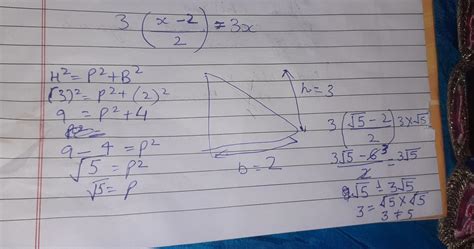 3 (x-2/2) = 3x
H² = P² + B²
(3)² = P² + (2)²
9 = P² + 4
9 - 4 = P²
√5 = P²
√5 = P
h = 3
b = 2
3 (√5 - 2/2) 3×√5
3√5 - 6³/2 = 3√5
3 = √5 × √5
3 ≠ 5